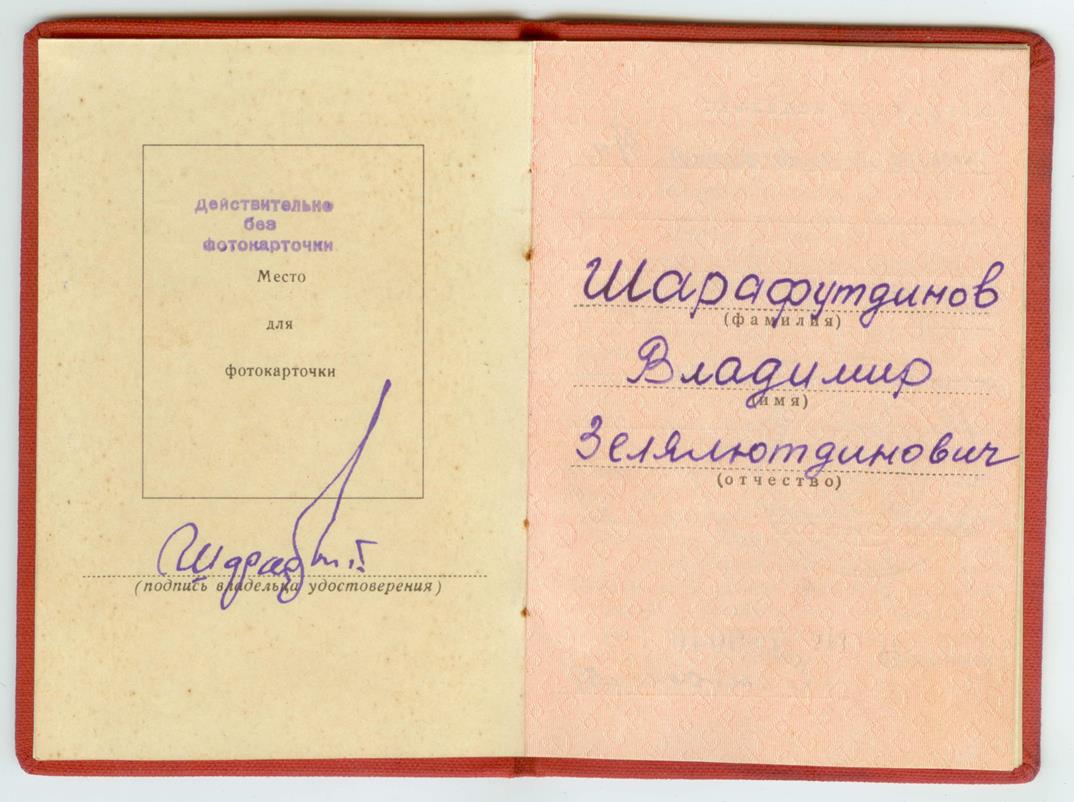 Действительно
без
фотокарточки
Место
для
фотокарточки
(подпись владельца удостоверения)
Шарафутдинов
(фамилия)
Владимир
(имя)
Зелялютдинович
(отчество)